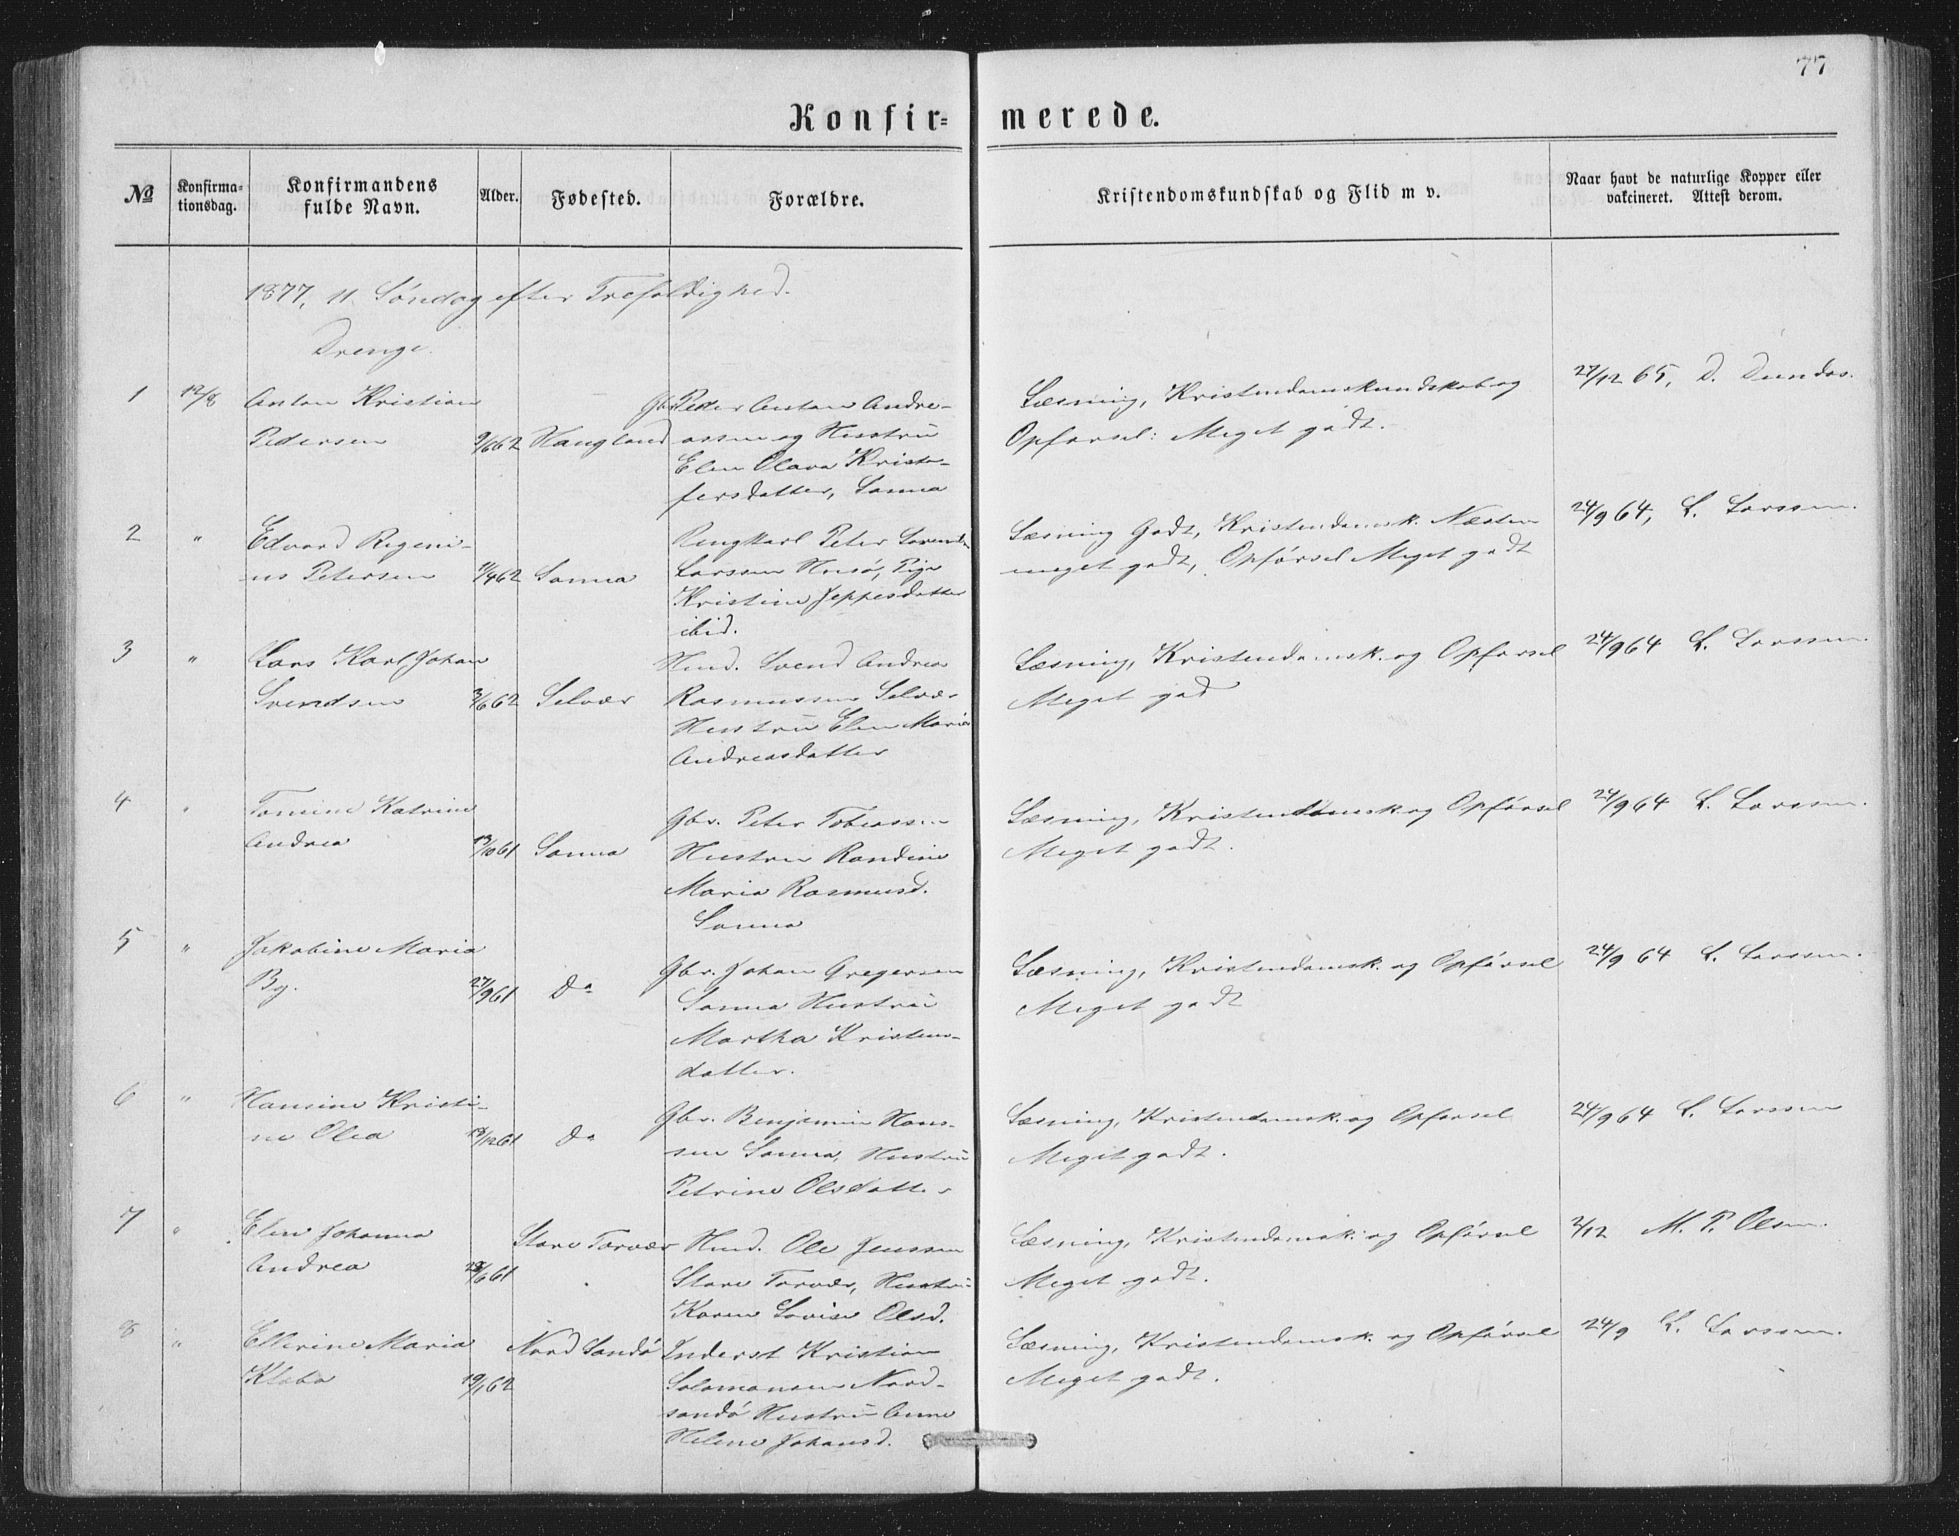 77
Konfir= merede.
№ Konfirma-tionsdag. Konfirmandens fulde Navn. Alder. Fødested. Forældre. Kristendomskundskab og Flid m v. Naar havt de naturlige Kopper eller vakcineret. Attest derom.
1877, 11 Søndag efter Trefoldighed.
Drenge.
1 12/8 Anton Kristian Gbr. Peder Anton Andre- Læsning, Kristendomskundskab og 27/12 65, D. Dundas.
Pedersen 9/6 62 Haugland assen og Hustru Opførsel: Meget godt.
Elen Olava Kristo-
fersdatter, Sanna
2 " Edvard Regini- Ungkarl Peter Lorents Læsning Godt, Kristendomsk. Næsten 24/9 64, L. Larssen.
us Petersen 1/4 62 Sanna Larssen Husø, Pige meget godt, Opførsel Meget godt
Kristine Jeppesdatter
ibid.
3 " Lars Karl Johan Hmd. Svend Andrea Læsning, Kristendomsk. og Opførsel 24/9 64 L. Larssen.
Svendsen 3/6 62 Selvær Rasmussen Selvær Meget god
Hustru Elen Maria
Andreasdatter
4 " Tomine Katrine Gbr. Peter Tobiassen Læsning, Kristendomsk og Opførsel 24/9 64 L. Larssen.
Andrea 13/10 61 Sanna Hustru Randine Meget godt.
Maria Rasmusd.
Sanna
5 " Jakobine Maria Gbr. Johan Gregersen Læsning, Kristendomsk. og Opførsel 24/9 64 L. Larssen.
By. 27/9 61 Do Sanna Hustru Meget godt
Martha Kristens-
datter.
6 " Hansine Kristi- Gbr. Benjamin Hans- Læsning, Kristendomsk. og Opførsel 24/9 64 L. Larssen
ne Olea /12 61 Do sen Sanna, Hustru Meget godt.
Petrine Olsdatter
7 " Elen Johanna Store Torvær Hmd. Ole Jenssen Læsning, Kristendomsk. og Opførsel 2/12 M. P. Olsen.
Andrea 23/6 61 Store Torvær, Hustru Meget godt.
Karen Lovise Olsd.
8 " Ellerine Maria Nord Sandø Inderst Kristian Læsning, Kristendomsk. og Opførsel 24/9 L. Larssen.
Klæbo 19/1 62 Salamonsen Nord- Meget godt.
sandø Hustru Anne
Helene Johansd.